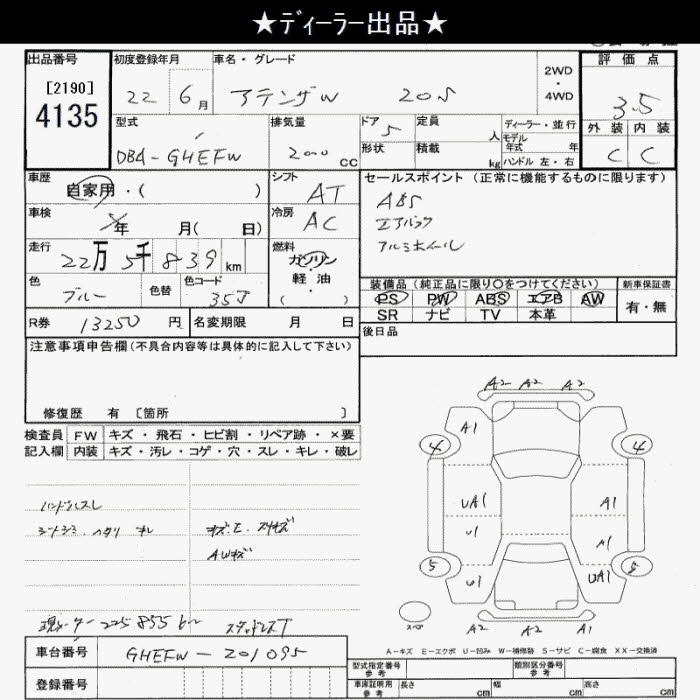 ★ディーラー出品★
出品番号
[2190]
4135
初度登録年月
22 6月
車名・グレード
アテンザW 20S
2WD
・
4WD
評価点
3.5
外装 内装
C C
型式
DBA-GHEFW
排気量
2000 cc
ドア 5
形状
定員 人
積載 kg
ディーラー・並行
モデル
年式 年
ハンドル 左・右
車歴
自家用・( )
シフト
AT
車検
年 月( 日)
冷房
AC
走行
22万5千839km
燃料
ガソリン
軽・油
( )
色
ブルー
色替
色コード
35J
R券 13250円
名変期限 月 日
セールスポイント(正常に機能するものに限ります)
ABS
エアバック
アルミホイール
装備品(純正品に限り○をつけてください)
PS PW ABS エアB AW
SR ナビ TV 本革
新車保証書
有・無
後日品
注意事項申告欄(不具合内容等は具体的に記入して下さい)
修復歴 有 [箇所 ]
検査員
記入欄
FW キズ・飛石・ヒビ割・リペア跡・×要
内装 キズ・汚レ・コゲ・穴・スレ・キレ・破レ
ハンドルスレ
シートシミ.ヘタリ
キズ.E.スリキズ
AWキズ
現メーター 225855km
スタッドレスT
A2 A2 A2
A1
4 4
UA1 A1
U1 A1
5 5
U1 UA1
スペア
A2 A2 A2
A-キズ E-エクボ U-凹み W-補修跡 S-サビ C-腐食 XX-交換済
車台番号 GHEFW-201095
登録番号
型式指定番号
参考
類別区分番号
参考
車庫証明用
参考
長さ cm 幅 cm 高さ cm